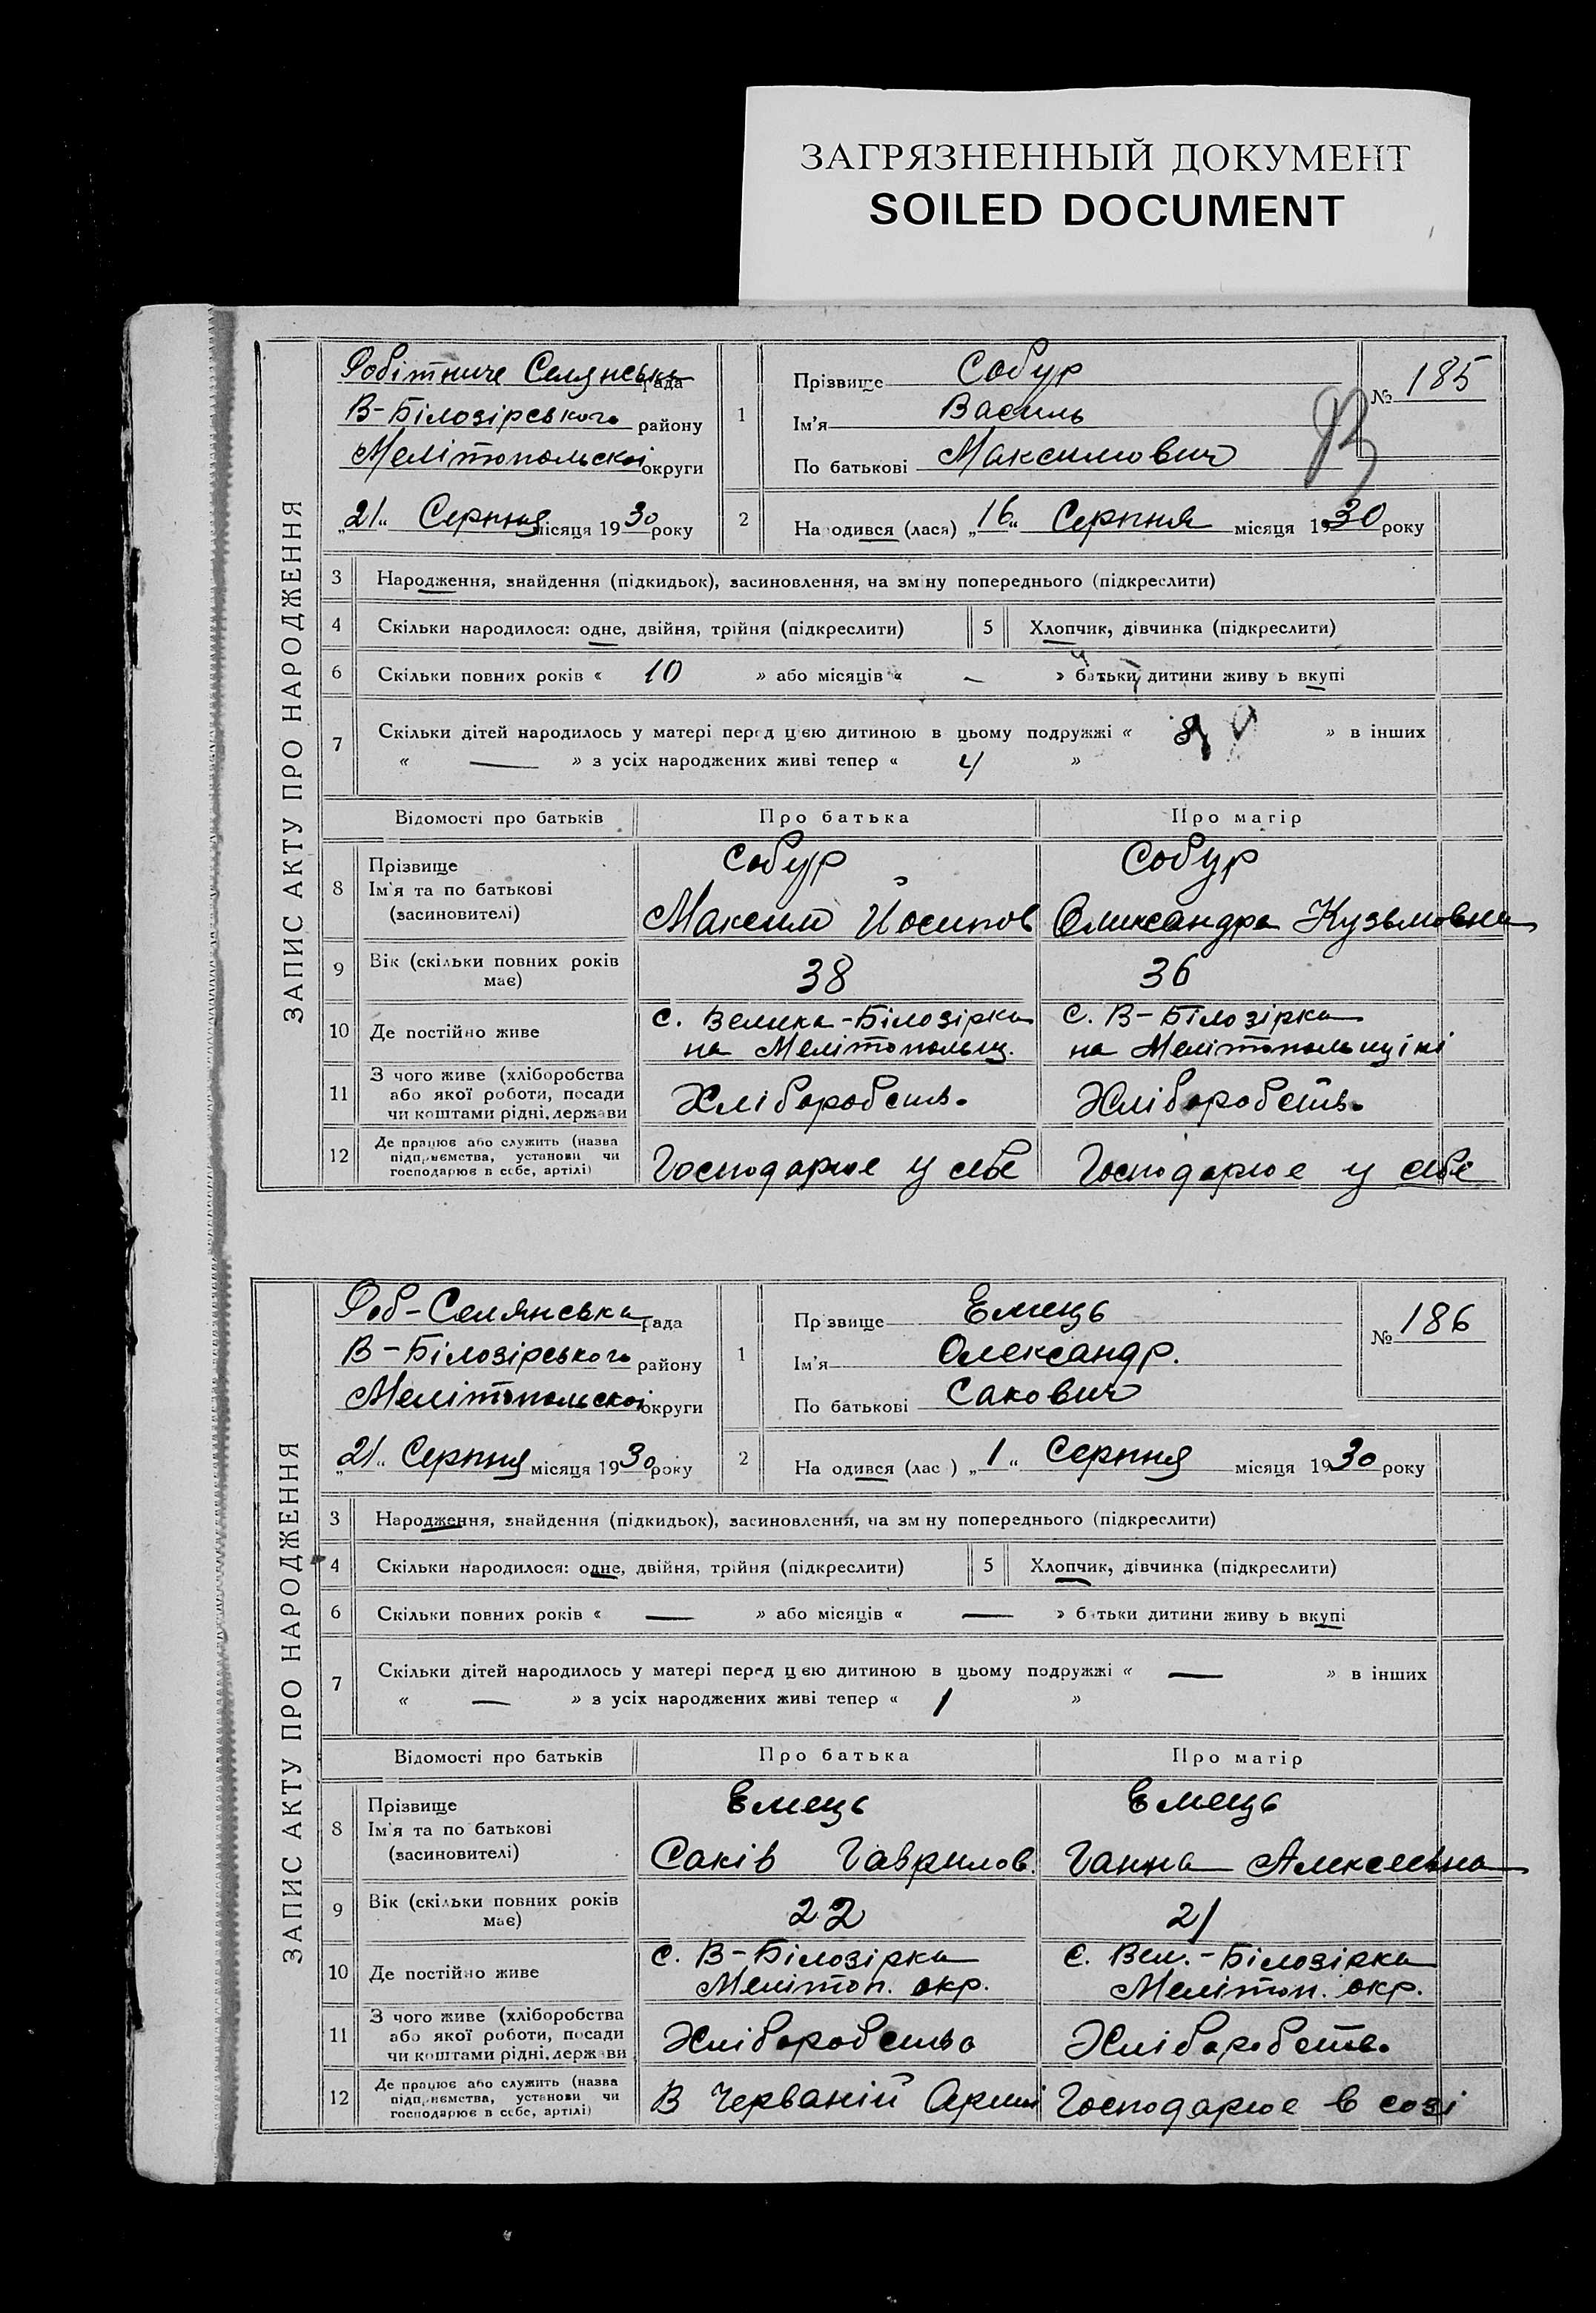 ЗАГРЯЗНЕННЫЙ ДОКУМЕНТ
SOILED DOCUMENT
ЗАПИС АКТУ ПРО НАРОДЖЕННЯ
Робітниче Селянська рада
В-Білозірського району
Мелітопольскої округи
„21“ Серпня місяця 1930 року
1
Прізвище Собур
Ім'я Василь
По батькові Максимович
№ 185
2
Народився (лася) „16“ Серпня місяця 1930 року
3 Народження, знайдення (підкидьок), засиновлення, на зміну попереднього (підкреслити)
4 Скільки народилося: одне, двійня, трійня (підкреслити) 5 Хлопчик, дівчинка (підкреслити)
6 Скільки повних років « 10 » або місяців « — » батьки дитини живуть вкупі
7 Скільки дітей народилось у матері перед цією дитиною в цьому подружжі « » в інших
« — » з усіх народжених живі тепер « 4 »
Відомості про батьків Про батька Про матір
8 Прізвище Собур Собур
Ім'я та по батькові
(засиновителі) Максим Йосипов Олександра Кузьмовна
9 Вік (скільки повних років
має) 38 36
10 Де постійно живе с. Велика-Білозірка с. В-Білозірка
на Мелітопольщ. на Мелітопольщіні
11 З чого живе (хліборобства
або якої роботи, посади
чи коштами рідні, держави Хліборобств. Хліборобств.
12 Де працює або служить (назва
підприємства, установи чи
господарює в себе, артілі) Господарює у себе Господарює у себе
ЗАПИС АКТУ ПРО НАРОДЖЕННЯ
Роб-Селянська рада
В-Білозірського району
Мелітопольскої округи
„21“ Серпня місяця 1930 року
1
Прізвище Емець
Ім'я Олександр.
По батькові Сакович
№ 186
2
Народився (лася) „1“ Серпня місяця 1930 року
3 Народження, знайдення (підкидьок), засиновлення, на зміну попереднього (підкреслити)
4 Скільки народилося: одне, двійня, трійня (підкреслити) 5 Хлопчик, дівчинка (підкреслити)
6 Скільки повних років « — » або місяців « — » батьки дитини живуть вкупі
7 Скільки дітей народилось у матері перед цією дитиною в цьому подружжі « — » в інших
« — » з усіх народжених живі тепер « 1 »
Відомості про батьків Про батька Про матір
8 Прізвище Емець Емець
Ім'я та по батькові
(засиновителі) Саків Гаврилов. Ганна Алексеевна
9 Вік (скільки повних років
має) 22 21
10 Де постійно живе с. В-Білозірка с. Вел.-Білозірка
Мелітоп. окр. Мелітоп. окр.
11 З чого живе (хліборобства
або якої роботи, посади
чи коштами рідні, держави Хліборобство Хліборобств.
12 Де працює або служить (назва
підприємства, установи чи
господарює в себе, артілі) В Черваній Армії Господарює в созі